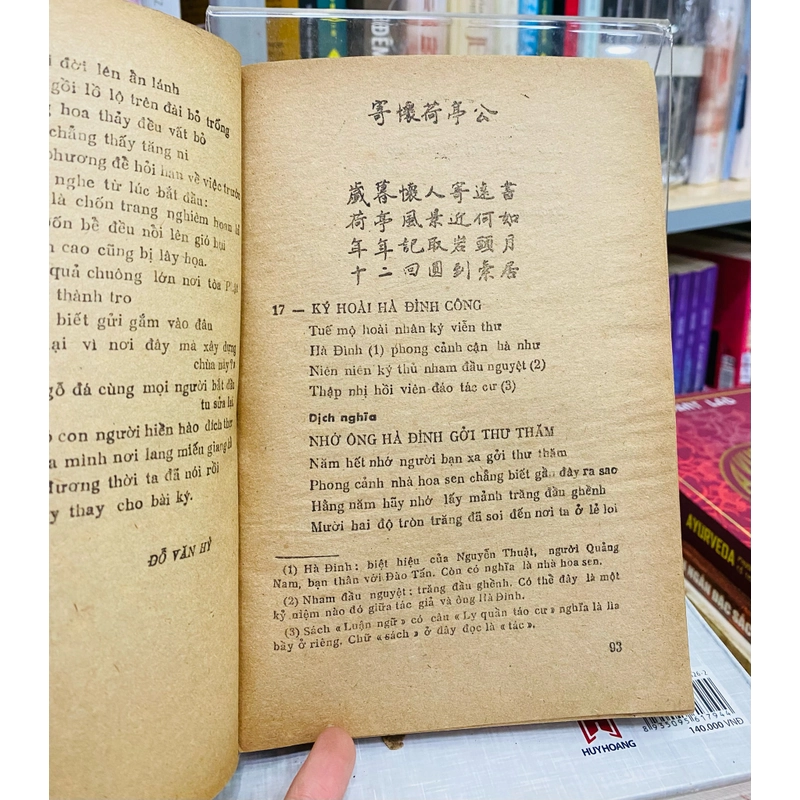 i đời lên ẩn lánh
gồi lồ lộ trên đài bỏ trống
g hoa thảy đều vất bỏ
chẳng thấy tăng ni
phương để hỏi han về việc trước
nghe từ lúc bắt đầu:
là chốn trang nghiêm
bốn bề đều nổi lên gió bụi
n cao cũng bị lây họa.
quả chuông lớn nơi tòa
thành tro
biết gửi gắm vào đâu
ại vì nơi đây mà xây dựng
chùa này?
gỗ đá cùng mọi người bắt đầu
tu sửa lại
o con người hiền hào đích thư
a mình nơi lang miếu giang
đương thời ta đã nói rồi
y thay cho bài ký.
ĐỖ VĂN HỶ
寄懷荷亭公
歲暮懷人寄遠書
荷亭風景近何如
年年記取岩頭月
十二回圓到索居
17 — KÝ HOÀI HÀ ĐÌNH CÔNG
Tuế mộ hoài nhân ký viễn thư
Hà Đình (1) phong cảnh cận hà như
Niên niên ký thủ nham đầu nguyệt (2)
Thập nhị hồi viên đáo tác cư (3)
Dịch nghĩa
NHỚ ÔNG HÀ ĐÌNH GỞI THƯ THĂM
Năm hết nhớ người bạn xa gởi thư thăm
Phong cảnh nhà hoa sen chẳng biết gần đây ra sao
Hằng năm hãy nhớ lấy mảnh trăng đầu ghềnh
Mười hai độ tròn trăng đã soi đến nơi ta ở lẻ loi
(1) Hà Đình: biệt hiệu của Nguyễn Thuật, người Quảng
Nam, bạn thân với Đào Tấn. Còn có nghĩa là nhà hoa sen.
(2) Nham đầu nguyệt: trăng đầu ghềnh. Có thể đây là một
kỷ niệm nào đó giữa tác giả và ông Hà Đình.
(3) Sách «Luận ngữ» có câu «Ly quần tác cư» nghĩa là lìa
bầy ở riêng. Chữ «sách» ở đây đọc là «tác».
93
AYURVEDA
NGÀN ĐẶC SẮC
HUYHOANG
8 935095 617944
140.000 VNĐ